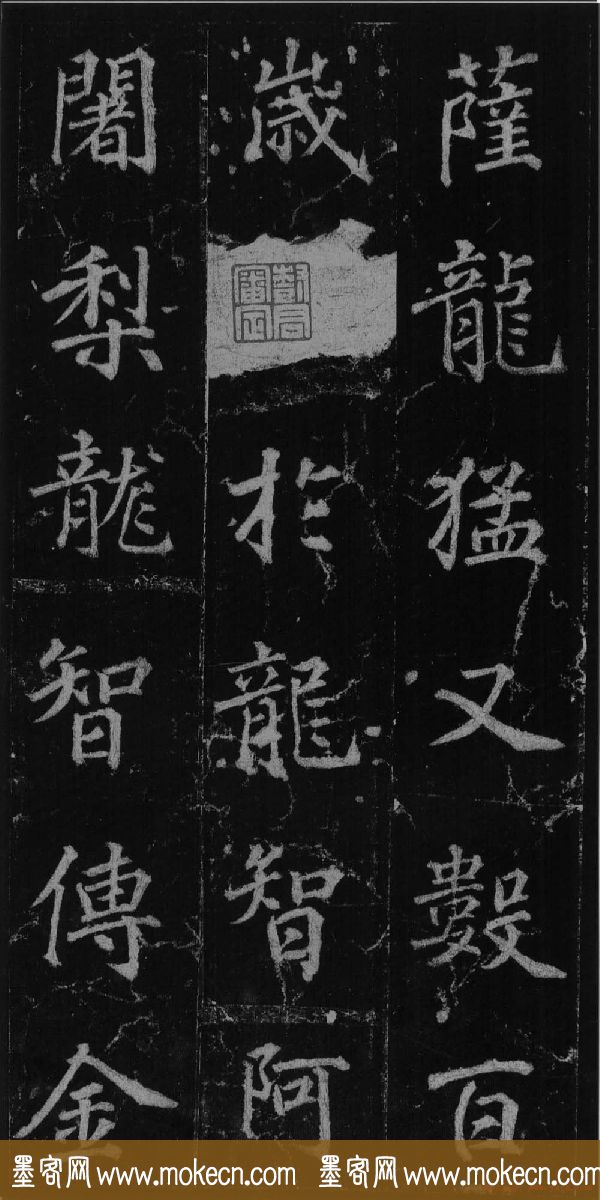 薩龍猛又數百
歲於龍智阿
闍梨龍智傳金
墨客网 www.mokecn.com 墨客网 www.mokecn.com